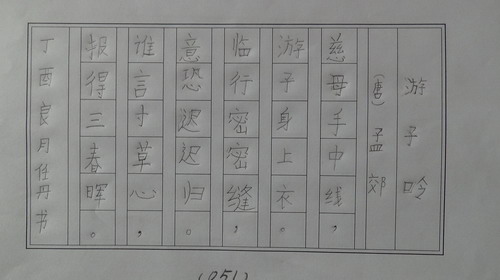 游子吟
(唐)孟郊
慈母手中线，
游子身上衣。
临行密密缝，
意恐迟迟归。
谁言寸草心，
报得三春晖。
丁酉良月任丹书
(951)